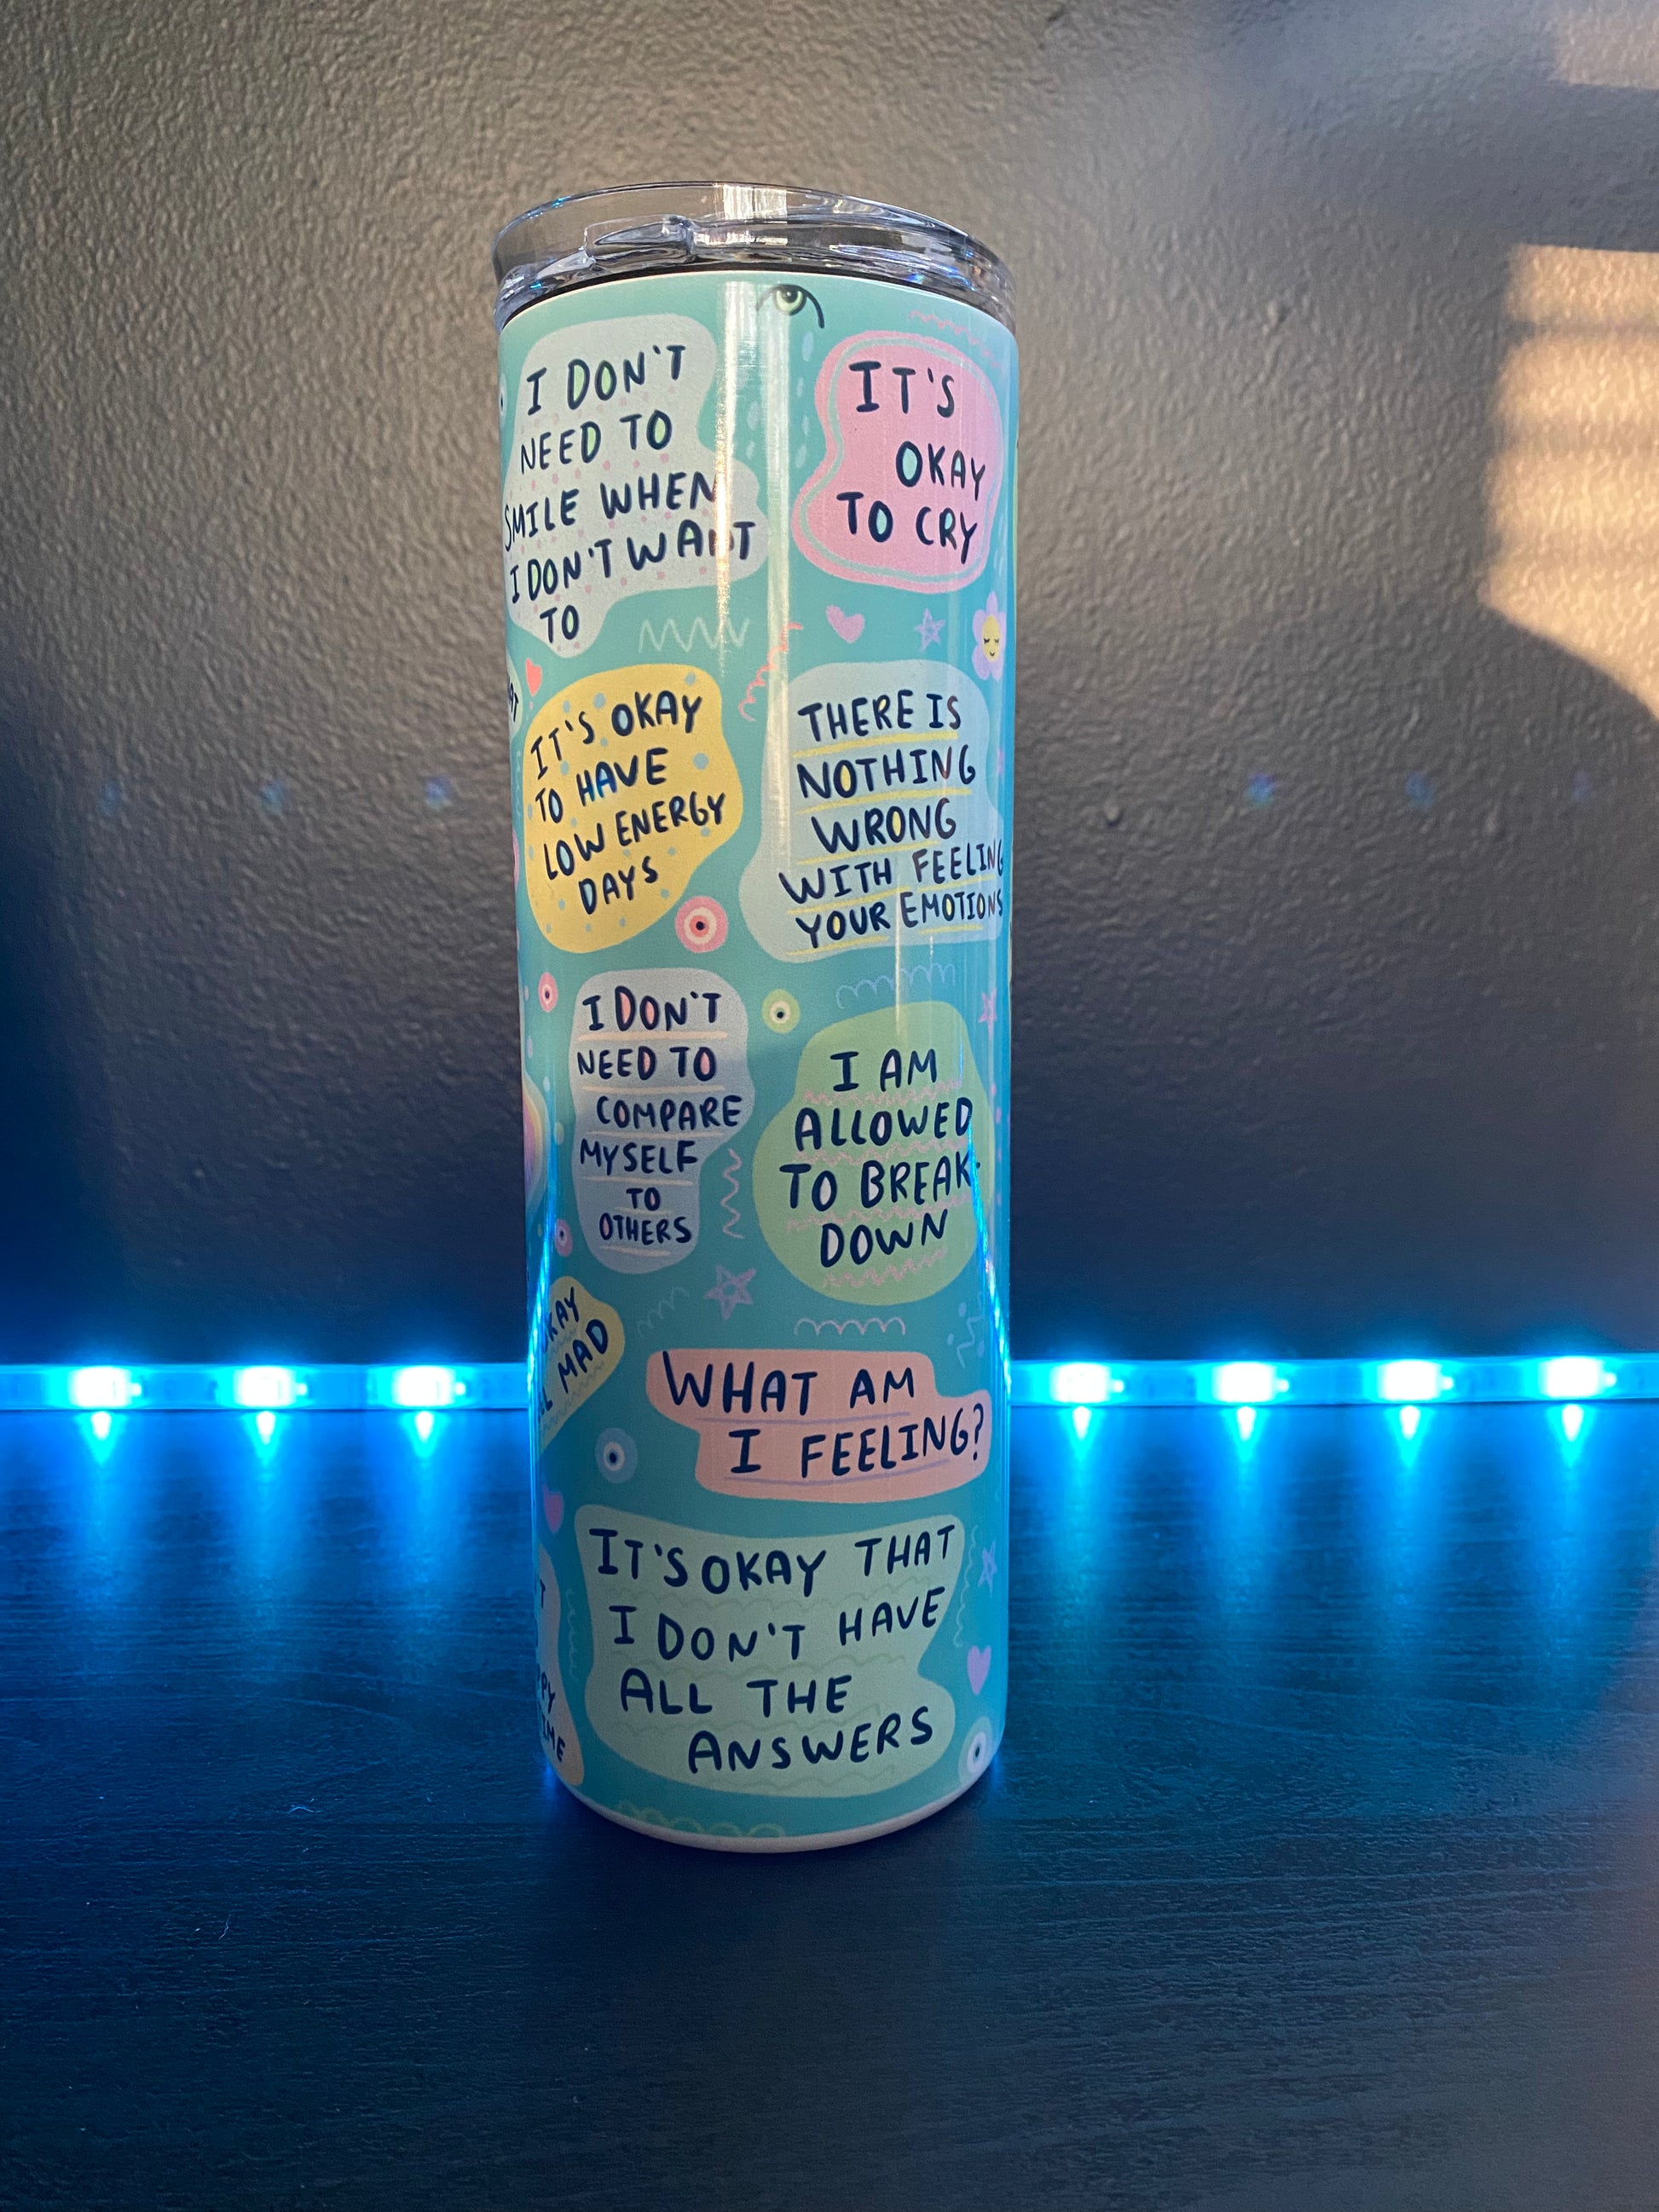 I DON'T
NEED TO
SMILE WHEN
I DON'T WANT
TO
IT'S
OKAY
TO CRY
IT'S OKAY
TO HAVE
LOW ENERGY
DAYS
THERE IS
NOTHING
WRONG
WITH FEELING
YOUR EMOTIONS
I DON'T
NEED TO
COMPARE
MYSELF
TO
OTHERS
I AM
ALLOWED
TO BREAK-
DOWN
MAD
WHAT AM
I FEELING?
IT'S OKAY THAT
I DON'T HAVE
ALL THE
ANSWERS